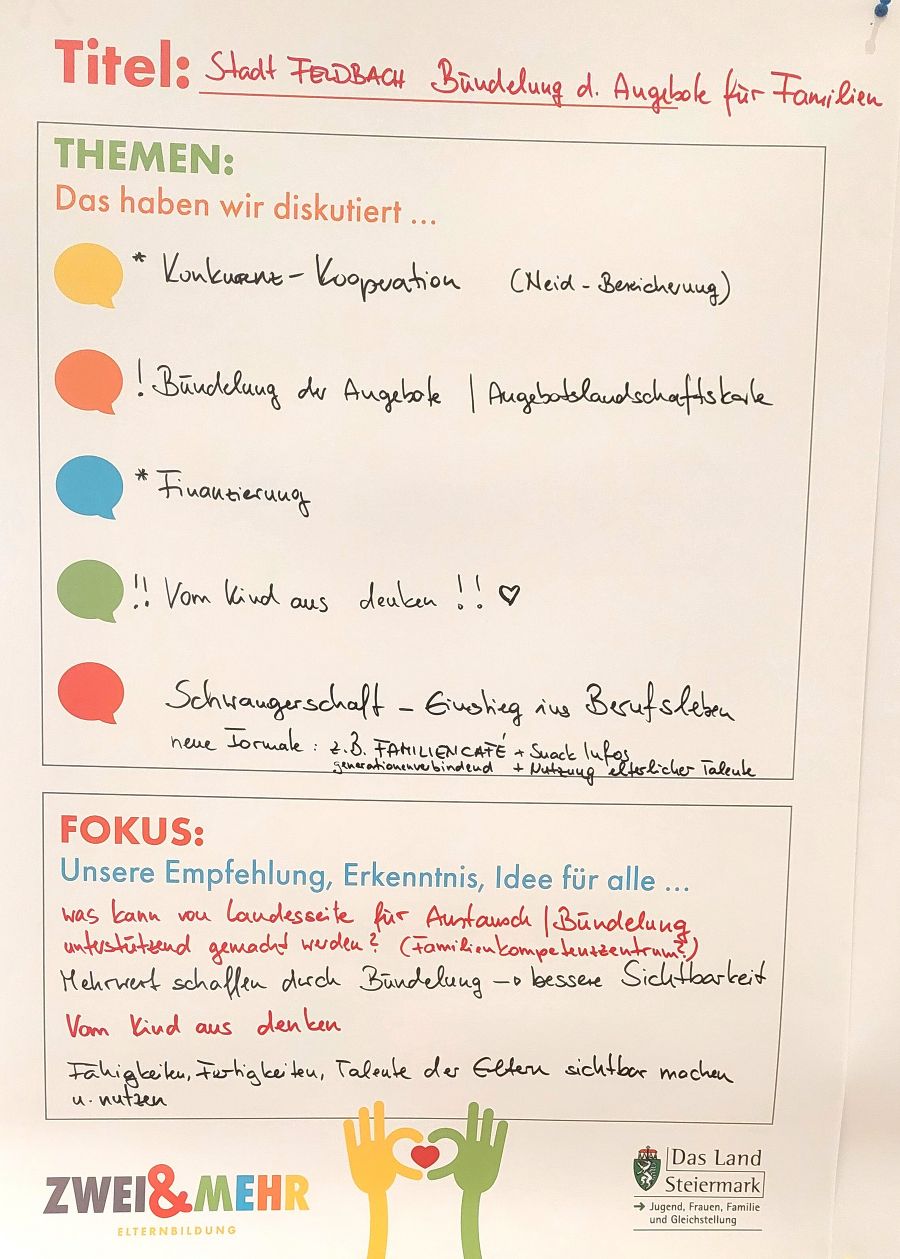 Titel: Stadt FELDBACH Bündelung d. Angebote für Familien
THEMEN:
Das haben wir diskutiert ...
* Konkurrenz - Kooperation (Neid - Bereicherung)
! Bündelung der Angebote | Angebotslandschaftskarte
* Finanzierung
!! Vom Kind aus denken !! ♡
Schwangerschaft - Einstieg ins Berufsleben
neue Formate : z.B. FAMILIENCAFÉ + Snack Infos
generationenverbindend + Nutzung elterlicher Talente
FOKUS:
Unsere Empfehlung, Erkenntnis, Idee für alle ...
was kann von Landesseite für Austausch | Bündelung
unterstützend gemacht werden? (Familienkompetenzzentrum?)
Mehrwert schaffen durch Bündelung → bessere Sichtbarkeit
Vom Kind aus denken
Fähigkeiten, Fertigkeiten, Talente der Eltern sichtbar machen
u. nutzen
ZWEI&MEHR
ELTERNBILDUNG
Das Land
Steiermark
→ Jugend, Frauen, Familie
und Gleichstellung